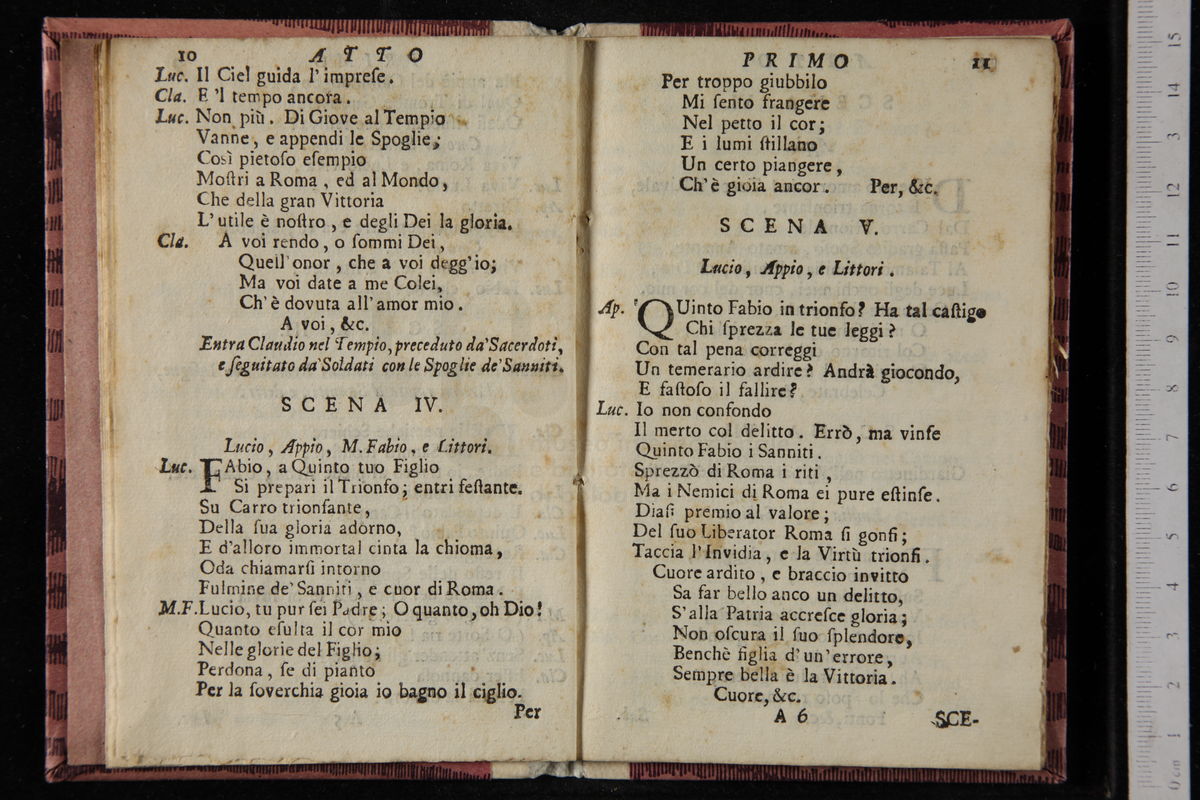 10 ATTO
Luc. Il Ciel guida l'impreſe.
Cla. E 'l tempo ancora.
Luc. Non più. Di Giove al Tempio
Vanne, e appendi le Spoglie;
Così pietoſo eſempio
Moſtri a Roma, ed al Mondo,
Che della gran Vittoria
L'utile è noſtro, e degli Dei la gloria.
Cla. A voi rendo, o ſommi Dei,
Quell'onor, che a voi degg'io;
Ma voi date a me Colei,
Ch'è dovuta all'amor mio.
A voi, &c.
Entra Claudio nel Tempio, preceduto da'Sacerdoti,
e ſeguitato da'Soldati con le Spoglie de'Sanniti.
SCENA IV.
Lucio, Appio, M. Fabio, e Littori.
Luc. FAbio, a Quinto tuo Figlio
Si prepari il Trionfo; entri feſtante.
Su Carro trionfante,
Della ſua gloria adorno,
E d'alloro immortal cinta la chioma,
Oda chiamarſi intorno
Fulmine de'Sanniti, e cuor di Roma.
M.F. Lucio, tu pur ſei Padre; O quanto, oh Dio!
Quanto eſulta il cor mio
Nelle glorie del Figlio;
Perdona, ſe di pianto
Per la ſoverchia gioia io bagno il ciglio.
Per
PRIMO 11
Per troppo giubbilo
Mi ſento frangere
Nel petto il cor;
E i lumi ſtillano
Un certo piangere,
Ch'è gioia ancor. Per, &c.
SCENA V.
Lucio, Appio, e Littori.
Ap. QUinto Fabio in trionfo? Ha tal caſtigo
Chi ſprezza le tue leggi?
Con tal pena correggi
Un temerario ardire? Andrà giocondo,
E faſtoſo il fallire?
Luc. Io non confondo
Il merto col delitto. Errò, ma vinſe
Quinto Fabio i Sanniti.
Sprezzò di Roma i riti,
Ma i Nemici di Roma ei pure eſtinſe.
Diaſi premio al valore;
Del ſuo Liberator Roma ſi gonfi;
Taccia l'Invidia, e la Virtù trionfi.
Cuore ardito, e braccio invitto
Sa far bello anco un delitto,
S'alla Patria accreſce gloria;
Non oſcura il ſuo ſplendore,
Benchè figlia d'un'errore,
Sempre bella è la Vittoria.
Cuore, &c.
A 6 SCE-
0 cm 1 2 3 4 5 6 7 8 9 10 11 12 13 14 15